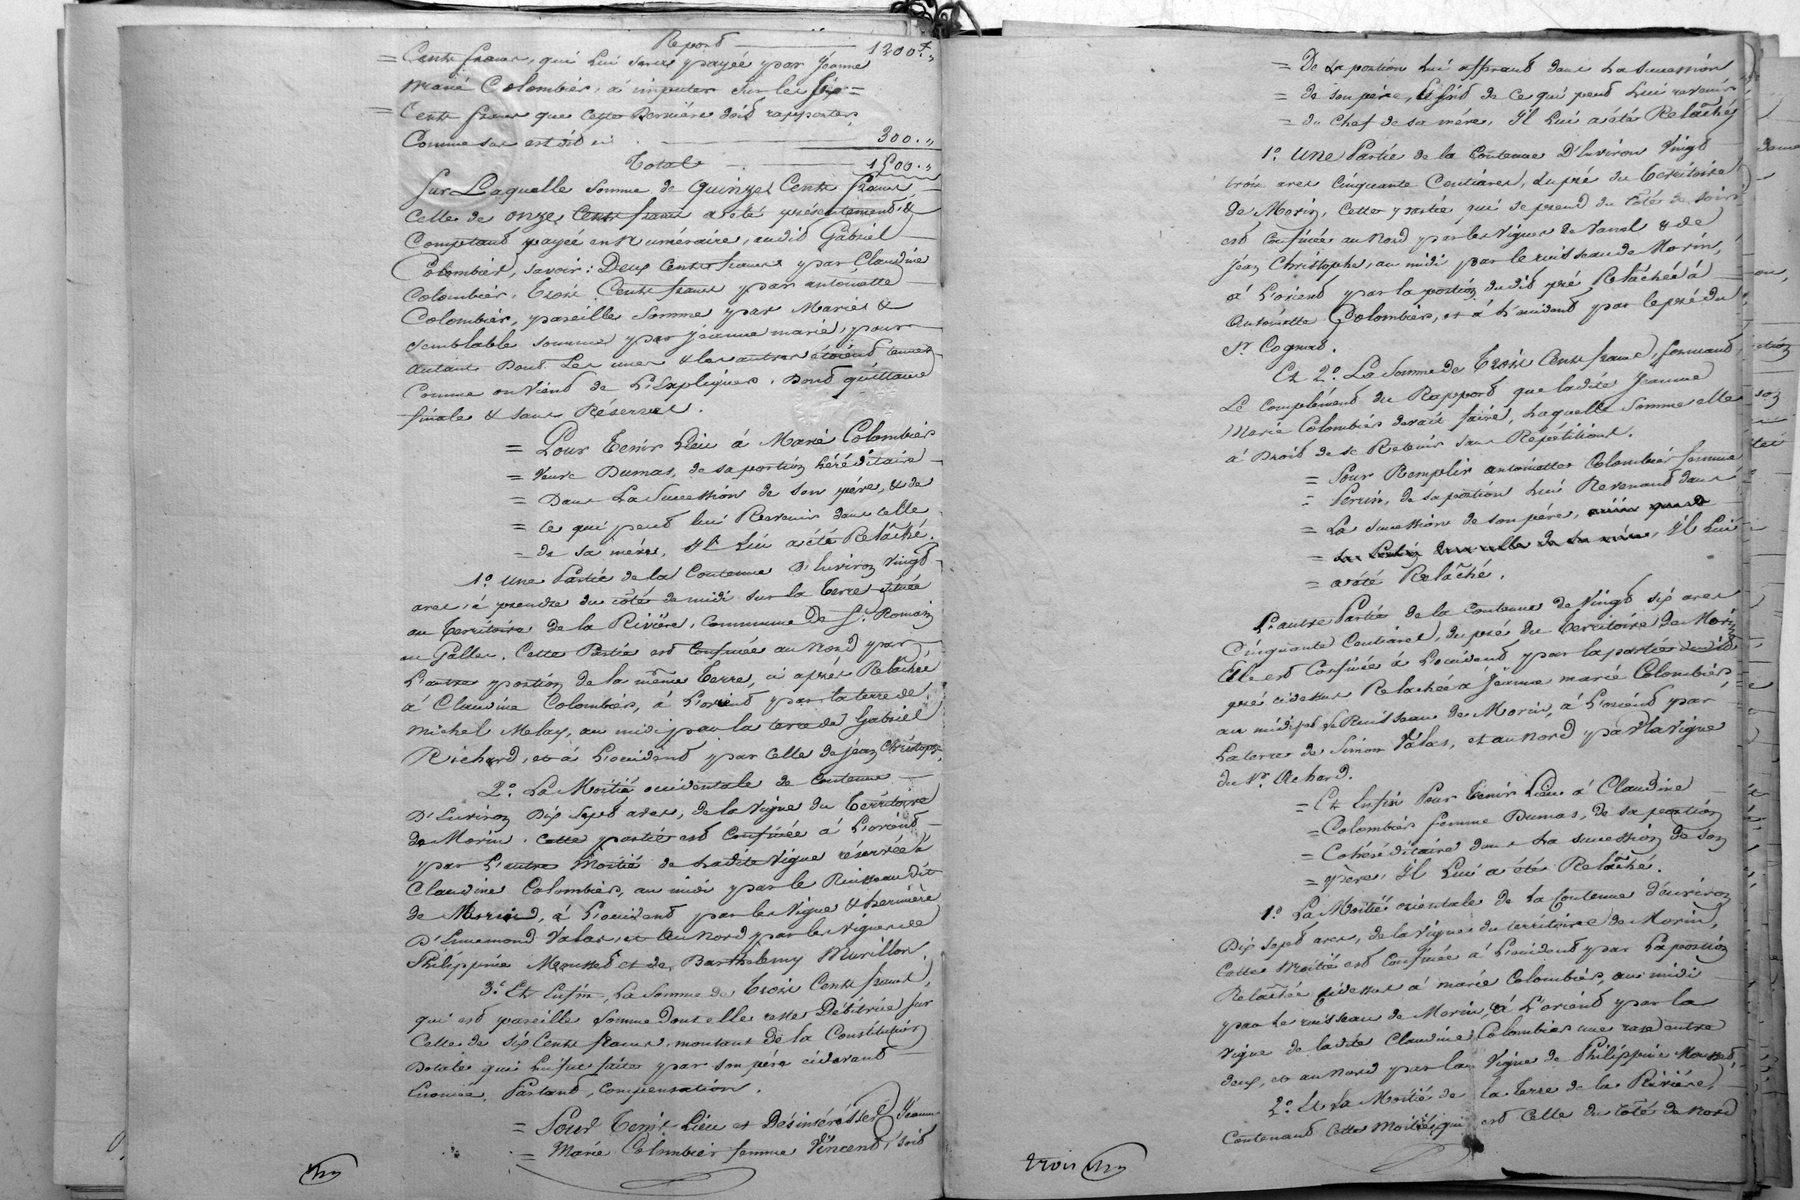 Report 1200 f "
= Cents francs, qui lui seront payés par Jeanne
Marie Colombier, à imputer sur les Six =
= Cents francs que cette dernière doit rapporter
Comme sus est dit ci 300 . "
Total 1500 . "
Sur Laquelle Somme de Quinze Cents francs
celle de onze Cents francs a été présentement &
Comptant payée en Numéraire, audit Gabriel
Colombier, savoir : Deux Cents francs par Claudine
Colombier, Trois Cents francs par antoinette
Colombier, pareille Somme par Marie &
semblable somme par jeanne marie, pour
autant Dont Les unes & les autres étoient tenues
Comme on Vient de L'Expliquer. Dont quittance
finale & sans Réserves.
= Pour Tenir Lieu à Marie Colombier
= Veuve Dumas, de sa portion héréditaire
= Dans La Succession de son père, & de
= ce qui peut lui Revenir dans celle
= de sa mère, Il Lui a été Relâché.
1.º Une Partie de la Contenue D'Environ Vingt
ares, à prendre du côté de midi sur la Terre située
au Territoire de la Rivière, Commune De St. Romain
en Gallier. Cette Partie est Confinée au Nord par
L'autre portion de la même Terre, ci après Relâchée
à Claudine Colombier, à L'orient par la terre de
Michel Melay, au midi par la terre de Gabriel
Richard, et à L'occident par celle de jean Christophe.
2.º La Moitié occidentale de Contenue
D'Environ Dix Sept ares, de la Vigne du Territoire
de Morin. Cette partie est Confinée à L'orient
par L'autre Moitié de Ladite Vigne réservée à
Claudine Colombier, au midi par le Ruisseau dit
de Morin, à L'occident par les Vigne &
D' Valas, et au Nord par les Vignes de
Philippine Mousset et de Barthelemy Murillon.
3.º Et Enfin, La Somme de Trois Cents francs,
qui est pareille Somme dont elle reste Débitrice sur
Celle de six Cents francs, montant de la Constitution
Dotale qui lui fut faite par son père cidevant
Enoncée, Partant, Compensation.
= Pour Tenir Lieu et Désintéresser Jeanne
= Marie Colombier femme Vincent, soit
= De La portion Lui afférant dans La succession
= de son père, soit de ce qui peut lui revenir
= du Chef de sa mère, Il Lui a été Relâché
1.º Une Partie de la Contenue D'Environ Vingt
trois ares Cinquante Centiares, du pré du Territoire
de Morin, Cette partie qui se prend du Côté de soir
est Confinée au Nord par les Vignes de Vanel & de
Jean Christophe, au midi par le ruisseau de Morin,
à L'orient par la portion dudit pré, Relâchée à
Antoinette Colombier, et à L'occident par le pré du
Sr Cognat.
Et 2.º La Somme de Trois Cents francs, formant
Le Complément du Rapport que ladite Jeanne
Marie Colombier devait faire, Laquelle Somme elle
a Droit de se Retenir sans Répétitions.
= Pour Remplir antoinette Colombier femme
= Perrin, de sa portion lui Revenant dans
= La succession de son père,
= Il Lui
= a été Relâché.
L'autre Partie de la contenue de Vingt six ares
Cinquante Centiares, du pré du Territoire de Morin
Elle est Confinée à L'occident par la partie dudit
pré cidessus Relachée à Jeanne marie Colombier,
au midi par le Ruisseau de Morin, à L'orient par
La terre de Simon Valas, et au Nord par La Vigne
du Sr Achard.
= Et Enfin Pour Tenir Lieu à Claudine
= Colombier femme Dumas, de sa portion
= Cohéréditaire dans La succession de son
= père, Il Lui a été Relâché.
1.º La Moitié orientale de La Contenue d'environ
Dix sept ares, de la Vigne du territoire de Morin,
Cette Moitié est Confinée à L'occident par La portion
Relâchée cidessus à marie Colombier, au midi
par Le ruisseau de Morin, à L'orient par la
Vigne de ladite Claudine Colombier une rase entre
deux, et au Nord par la Vigne de Philippine Mousset.
2.º Et La Moitié de la Terre de la Rivière,
Contenant Cette Moitié, qui est Celle du Côté de Nord
trois